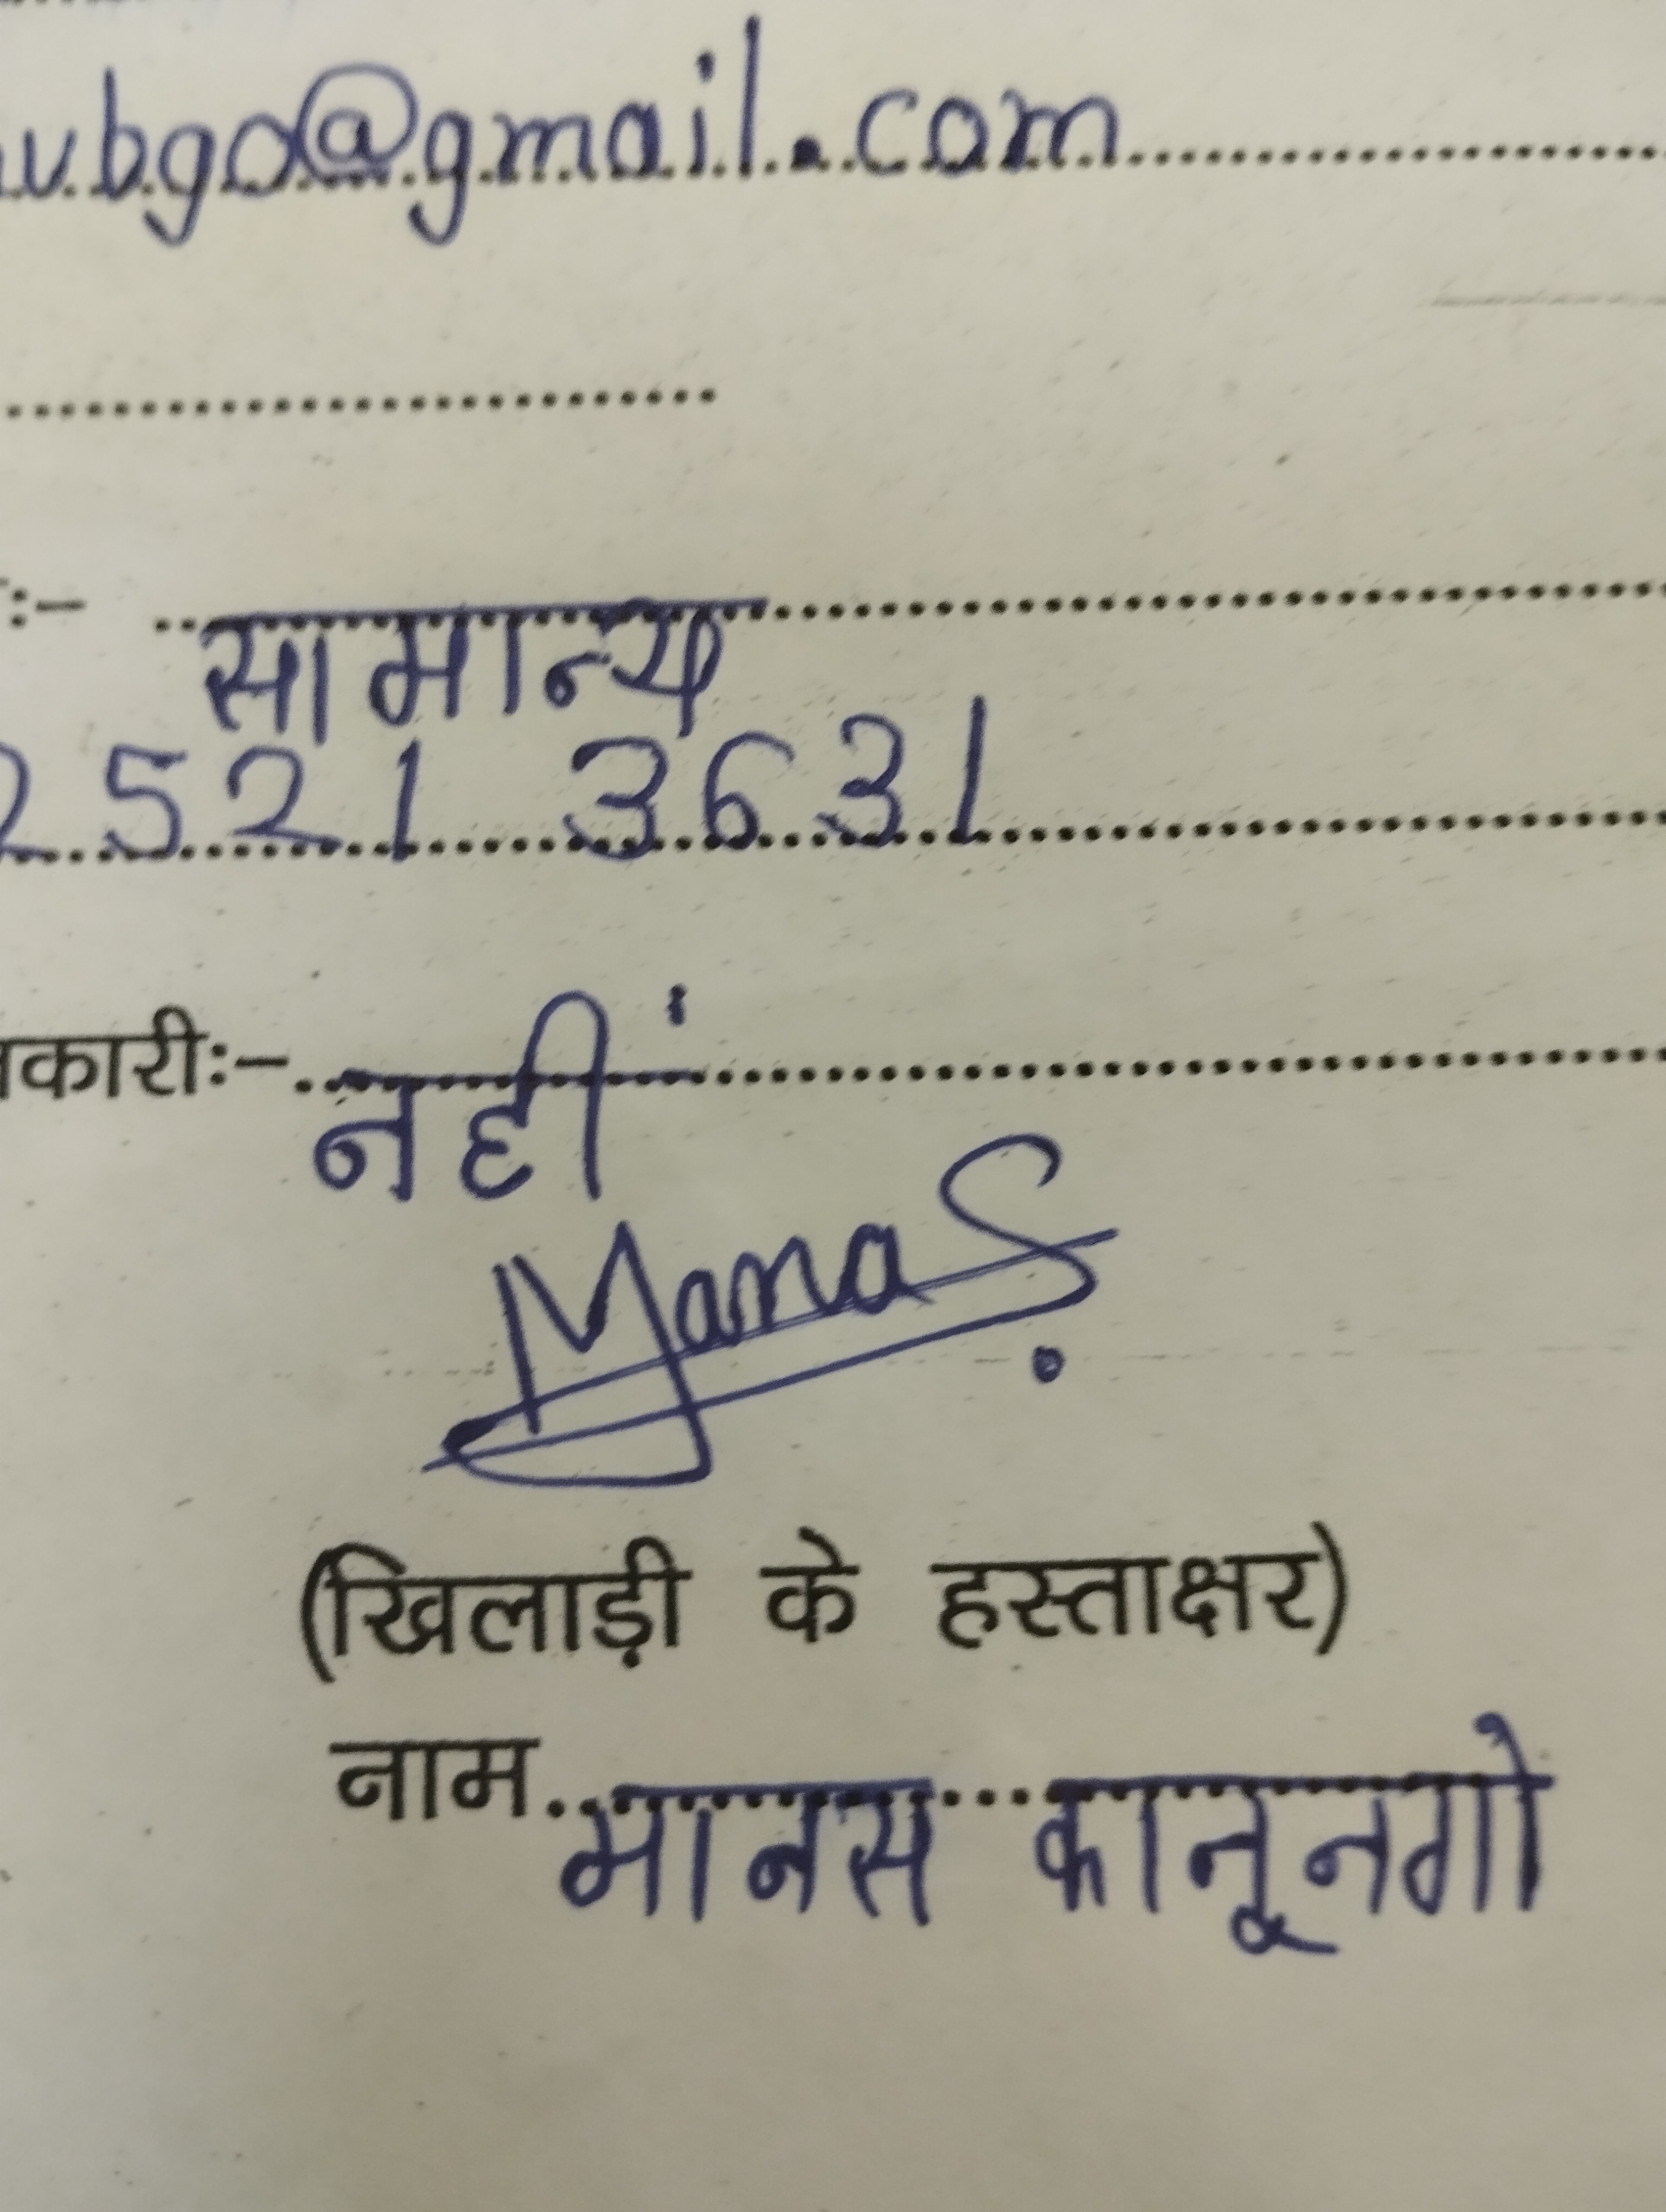 vbgo@gmail.com
:- सामान्य
2521 3631
कारीः- नहीं
Manas
(खिलाड़ी के हस्ताक्षर)
नाम मानस कानूनगो